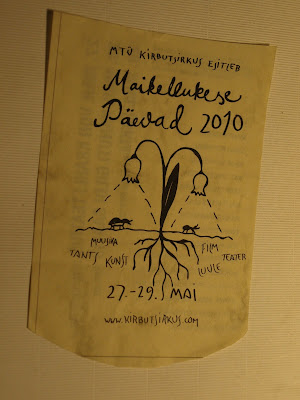 MTÜ KIRBUTSIRKUS ESITLEB
Maikellukese
Päevad 2010
MUUSIKA FILM
TANTS KUNST LUULE TEATER
27.-29. MAI
WWW.KIRBUTSIRKUS.COM